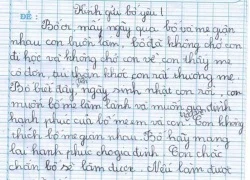 Kính gửi bố yêu!
ĐỀ:
Bố ơi, mấy ngày qua, bố và mẹ giận
nhau con buồn lắm, bố đã không chở con
đi học và không chở con về con thấy mẹ
cô đơn tủi thân khóc con rất thương mẹ
Bố biết đấy ngày sinh nhật con rồi. con
muốn bố mẹ làm lành và muốn gia đình
hạnh phúc của bố mẹ em và con. Con không
thích bố mẹ giận nhau. Bố hãy mang
lại hạnh phúc cho gia đình. Con chắc
chắn bố sẽ làm được. Nếu làm được